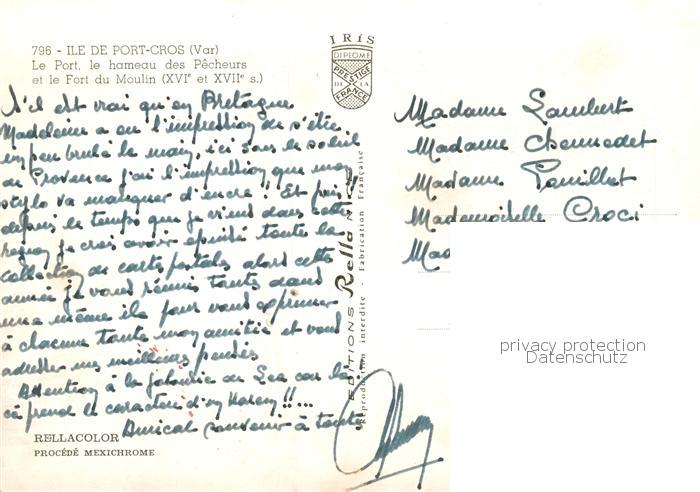 796 - ILE DE PORT-CROS (Var)
Le Port, le hameau des Pêcheurs
et le Fort du Moulin (XVIe et XVIIe s.)
IRIS
DIPLOME
PRESTIGE
DE LA
FRANCE
S'il est vrai qu'en Bretagne
Madeleine a eu l'impression de s'être
un peu brulé la main, ici sous le soleil
de Provence j'ai l'impression que mon
stylo va manquer d'encre ! Et puis
depuis le temps que je viens dans cette
région je crois avoir épuisé toute la
collection de cartes postales alors cette
année je vous réunis toutes dans
une même île pour vous exprimer
à chacune toute mon amitié et vous
adresser mes meilleures pensées
Attention à la jalousie car là
çà prend le caractère d'un Harem !!...
Amical souvenir à toutes
RELLACOLOR
PROCÉDÉ MEXICHROME
EDITIONS Rella NICE
Reproduction interdite - Fabrication Française
Madame Lambert
Madame Chennedet
Madame Pouillet
Mademoiselle Croci
Mad
privacy protection
Datenschutz